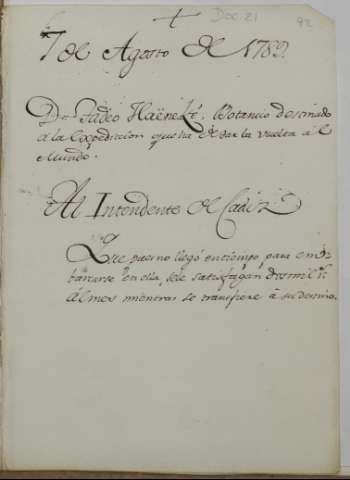 Doc. 21
92
7 de Agosto de 1789.
Dn. Tadeo Haënek. Botanico destinado
a la Expedicion que ha de dar la vuelta al
Mundo.
Al Intendente de Cadiz
Que pues no llegó en tiempo para em
barcarse en ella, se le satisfagan dos mil
al mes mientras se transfiere á su destino.